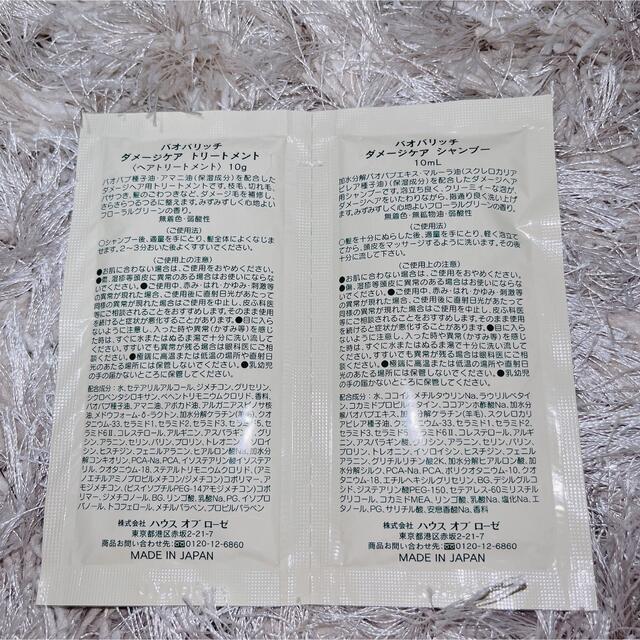 バオバリッチ
ダメージケア トリートメント
〈ヘアトリートメント〉 10g
バオバブ種子油・アマニ油(保湿成分)を配合した
ダメージヘア用トリートメントです。枝毛、切れ毛、
パサつき、髪のごわつきなど、ダメージ毛を補修し、
さらさらうるつるに整えます。みずみずしく心地よい
フローラルグリーンの香り。
無着色・弱酸性
〈ご使用法〉
○シャンプー後、適量を手にとり、髪全体によくなじま
せます。2~3分おいた後よくすすいでください。
〈ご使用上の注意〉
●お肌に合わない場合は、ご使用をおやめください。
●傷、湿疹等頭皮に異常のある場合はお使いにならな
いでください。●ご使用中、赤み・はれ・かゆみ・刺激等
の異常が現れた場合、ご使用後に直射日光があたって
同様の異常が現れた場合はご使用を中止し、皮ふ科医
等にご相談されることをおすすめします。そのまま使用
を続けると症状が悪化することがあります。●目に入ら
ないようご注意し、入った時や異常(かすみ等)を感じ
た時は、すぐに水またはぬるま湯で十分に洗い流して
ください。すすいでも異常が残る場合は眼科医にご相
談ください。●極端に高温または低温の場所や直射日
光のあたる場所には保管しないでください。●乳幼児
の手の届かないところに保管してください。
配合成分:水、セテアリルアルコール、ジメチコン、グリセリン、
シクロペンタシロキサン、ベヘントリモニウムクロリド、香料、
バオバブ種子油、アマニ油、アボカド油、アルガニアスピノサ核
油、メドウフォーム-δ-ラクトン、加水分解ケラチン(羊毛)、クオ
タニウム-33、セラミド1、セラミド2、セラミド3、セラミド5、セ
ラミド6Ⅱ、コレステロール、アルギニン、アスパラギン酸、グリ
シン、アラニン、セリン、バリン、プロリン、トレオニン、イソロイシ
ン、ヒスチジン、フェニルアラニン、ヒアルロン酸Na、加水分
解コンキオリン、PCA-Na、PCA、イソステアリン酸イソステア
リル、クオタニウム-18、ステアルトリモニウムクロリド、(アミ
ノエチルアミノプロピルメチコン/ジメチコン)コポリマー、ア
モジメチコン、(ビスイソブチルPEG-14/アモジメチコン)コポ
リマー、ジメチコノール、BG、リンゴ酸、乳酸Na、PG、イソプロ
パノール、トコフェロール、メチルパラベン、プロピルパラベン
株式会社 ハウス オブ ローゼ
東京都港区赤坂2-21-7
商品お問い合わせ先:0120-12-6860
MADE IN JAPAN
バオバリッチ
ダメージケア シャンプー
10mL
加水分解バオバブエキス・マルーラ油(スクレロカリア
ビレア種子油)(保湿成分)を配合したダメージヘア
用シャンプーです。泡立ち良く、クリーミィーな泡が、
ダメージヘアをいたわりながら、指通り良く洗い上げ
ます。みずみずしく心地よいフローラルグリーンの香り。
無着色・無鉱物油・弱酸性
〈ご使用法〉
○髪を十分にぬらした後、適量を手にとり、軽く泡立て
てから、頭皮をマッサージするように洗います。その後
十分に流して下さい。
〈ご使用上の注意〉
●お肌に合わない場合は、ご使用をおやめください。
●傷、湿疹等頭皮に異常のある場合はお使いにならな
いでください。●ご使用中、赤み・はれ・かゆみ・刺激等
の異常が現れた場合、ご使用後に直射日光があたって
同様の異常が現れた場合はご使用を中止し、皮ふ科医
等にご相談されることをおすすめします。そのまま使用
を続けると症状が悪化することがあります。●目に入ら
ないようご注意し、入った時や異常(かすみ等)を感じ
た時は、すぐに水またはぬるま湯で十分に洗い流して
ください。すすいでも異常が残る場合は眼科医にご相
談ください。●極端に高温または低温の場所や直射日
光のあたる場所に保管しないでください。●乳幼児の
手の届かないところに保管してください。
配合成分:水、ココイルメチルタウリンNa、ラウリルベタイ
ン、コカミドプロピルベタイン、ココアンホ酢酸Na、加水分
解バオバブエキス、加水分解ケラチン(羊毛)、スクレロカリ
アビレア種子油、クオタニウム-33、セラミド1、セラミド2、
セラミド3、セラミド5、セラミド6Ⅱ、コレステロール、アルギ
ニン、アスパラギン酸、グリシン、アラニン、セリン、バリン、
プロリン、トレオニン、イソロイシン、ヒスチジン、フェニルア
ラニン、グリチルリチン酸2K、加水分解ヒアルロン酸、加
水分解シルク、PCA-Na、PCA、ポリクオタニウム-10、クオ
タニウム-18、エチルヘキシルグリセリン、BG、デシルグルコ
シド、ジステアリン酸PEG-150、セテアレス-60ミリスチル
グリコール、コカミドMEA、リンゴ酸、乳酸Na、塩化Na、エ
タノール、PG、サリチル酸、安息香酸Na、香料
株式会社 ハウス オブ ローゼ
東京都港区赤坂2-21-7
商品お問い合わせ先:0120-12-6860
MADE IN JAPAN